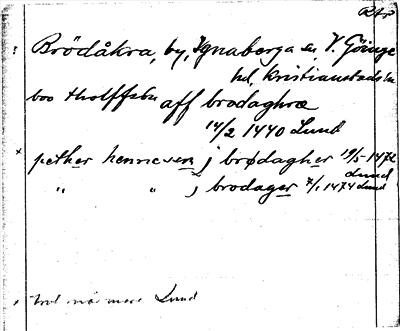 RAP
: Brödåkra, by, Ignaberga sn, V. Göinge
hd, Kristianstads län
boo tholffsøn aff brodaghra
14/2 1440 Lund
× pether hennecsen j brødagher 19/5 1472
Lund
" " j brodager 7/1 1474 Lund
Lund